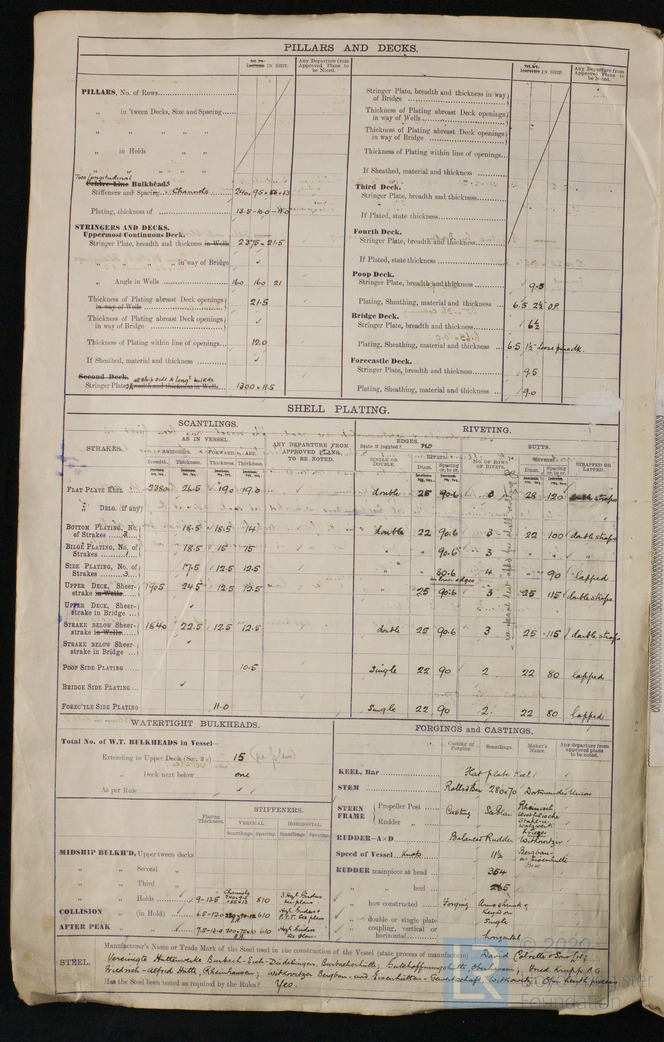 PILLARS AND DECKS.
IN SHIP.
Any Departure from Approved Plans to be Noted.
PILLARS, No. of Rows
" in 'tween Decks, Size and Spacing
" " " "
" in Holds
" " " "
Two Longitudinal
Centre Line Bulkheads
Stiffeners and Spacing Channels 240
Plating, thickness of
STRINGERS AND DECKS.
Uppermost Continuous Deck.
Stringer Plate, breadth and thickness in Wells 2375 × 21.5
" " " " in way of Bridge
" Angle in Wells 160 160 21
Thickness of Plating abreast Deck openings in way of Wells 21.5
Thickness of Plating abreast Deck openings in way of Bridge
Thickness of Plating within line of openings 12.0
If Sheathed, material and thickness
Second Deck.
at ship side & longl. bulkhds
Stringer Plate, breadth and thickness in Wells 1300 × 11.5
IN SHIP.
Any Departure from Approved Plans to be Noted.
Stringer Plate, breadth and thickness in way of Bridge
Thickness of Plating abreast Deck openings in way of Wells
Thickness of Plating abreast Deck openings in way of Bridge
Thickness of Plating within line of openings
If Sheathed, material and thickness
Third Deck.
Stringer Plate, breadth and thickness
If Plated, state thickness
Fourth Deck.
Stringer Plate, breadth and thickness
If Plated, state thickness
Poop Deck.
Stringer Plate, breadth and thickness 9.5
Plating, Sheathing, material and thickness 6.5 2½ O.P.
Bridge Deck.
Stringer Plate, breadth and thickness 6½
Plating, Sheathing, material and thickness 6.5
Forecastle Deck.
Stringer Plate, breadth and thickness 9.5
Plating, Sheathing, material and thickness 9.0
SHELL PLATING.
SCANTLINGS.
RIVETING.
STRAKES.
AS IN VESSEL.
ANY DEPARTURE FROM APPROVED PLANS TO BE NOTED.
EDGES.
BUTTS.
AMIDSHIPS. FORWARD. AFT.
State if joggled? no
Breadth. Thickness. Thickness. Thickness.
SINGLE OR DOUBLE.
RIVETS.
Diam. Spacing cr. to cr.
NO. OF ROWS OF RIVETS.
RIVETS.
Diam. Spacing cr. to cr.
STRAPPED OR LAPPED.
FLAT PLATE KEEL 2380 26.5 19.0 19.0 double 25 90.6 3 28 120 straps
" DBLG. (if any)
BOTTOM PLATING, No. of Strakes 18.5 18.5 14 double 22 90.6 3 22 100 double straps
BILGE PLATING, No. of Strakes 18.5 15 15 " 90.6 3 " " "
SIDE PLATING, No. of Strakes 3 17.5 12.5 12.5 " 80.6 4 " 90 lapped
UPPER DECK, Sheerstrake in Wells 1905 24.5 12.5 12.5 " 25 90.6 3 25 115 double straps
UPPER DECK, Sheerstrake in Bridge
STRAKE BELOW Sheerstrake in Wells 1840 22.5 12.5 12.5 double 25 90.6 3 25 115 double straps
STRAKE BELOW Sheerstrake in Bridge
POOP SIDE PLATING 10.5 Single 22 90 2 22 80 lapped
BRIDGE SIDE PLATING
FORECASTLE SIDE PLATING 11.0 Single 22 90 2 22 80 lapped
WATERTIGHT BULKHEADS.
Total No. of W.T. BULKHEADS in Vessel—
Extending to Upper Deck (Sec. 3 c) 15
" Deck next below one
As per Rule
STIFFENERS.
Plating Thickness.
VERTICAL. HORIZONTAL.
Scantlings. Spacing. Scantlings. Spacing.
MIDSHIP BULKH'D, Upper tween decks
" " Second "
" " Third "
" " Holds 9-12.5 Channels 810 3 Hzgl Girders see plans
COLLISION " (in Hold) 6.5-12.0 610
AFTER PEAK " " 7.5-12.0 610
FORGINGS AND CASTINGS.
Casting or Forging. Scantlings. Maker's Name. Any departure from approved plans to be noted.
KEEL, Bar Flat plate Keel
STEM Rolled Bar 280 × 70 Dortmunder Union
STERN FRAME { Propeller Post Casting See Plan Rheinisch Westfälische
Rudder "
RUDDER—A×D Balanced Rudder Witkowitzer
Speed of Vessel knots 11½ Bergbau- u. Eisenhütte
RUDDER mainpiece at head 354
" " heel 265
" how constructed Forging
" double or single plate Single
" coupling, vertical or horizontal horizontal
STEEL.
Manufacturer's Name or Trade Mark of the Steel used in the construction of the Vessel (state process of manufacture) David Colville & Sons Ltd;
Vereinigte Huttenwerke Burbach-Eich-Düdelingen, Burbacherhütte; Gutehoffnungshütte Oberhausen; Fried. Krupp A.G.
Friedrich-Alfred Hütte, Rheinhausen; Witkowitzer Bergbau- und Eisenhütten-Gewerkschaft, Witkowitz. Open hearth process
Has the Steel been tested as required by the Rules? Yes.
© 2020
Foundation